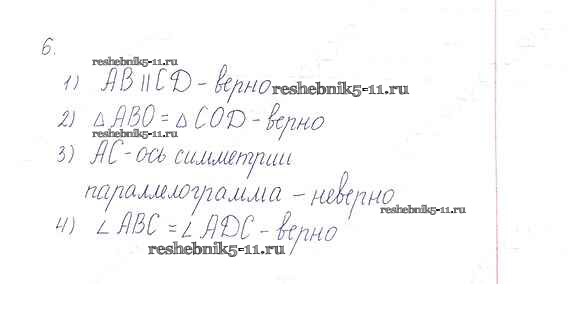 6.
reshebnik5-11.ru
1) AB || CD - верно
reshebnik5-11.ru
2) △ ABO = △ COD - верно
reshebnik5-11.ru
3) AC - ось симметрии
параллелограмма - неверно
reshebnik5-11.ru
4) ∠ ABC = ∠ ADC - верно
reshebnik5-11.ru